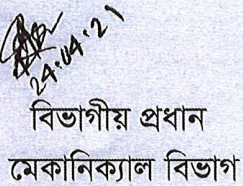 24.04.21
বিভাগীয় প্রধান
মেকানিক্যাল বিভাগ